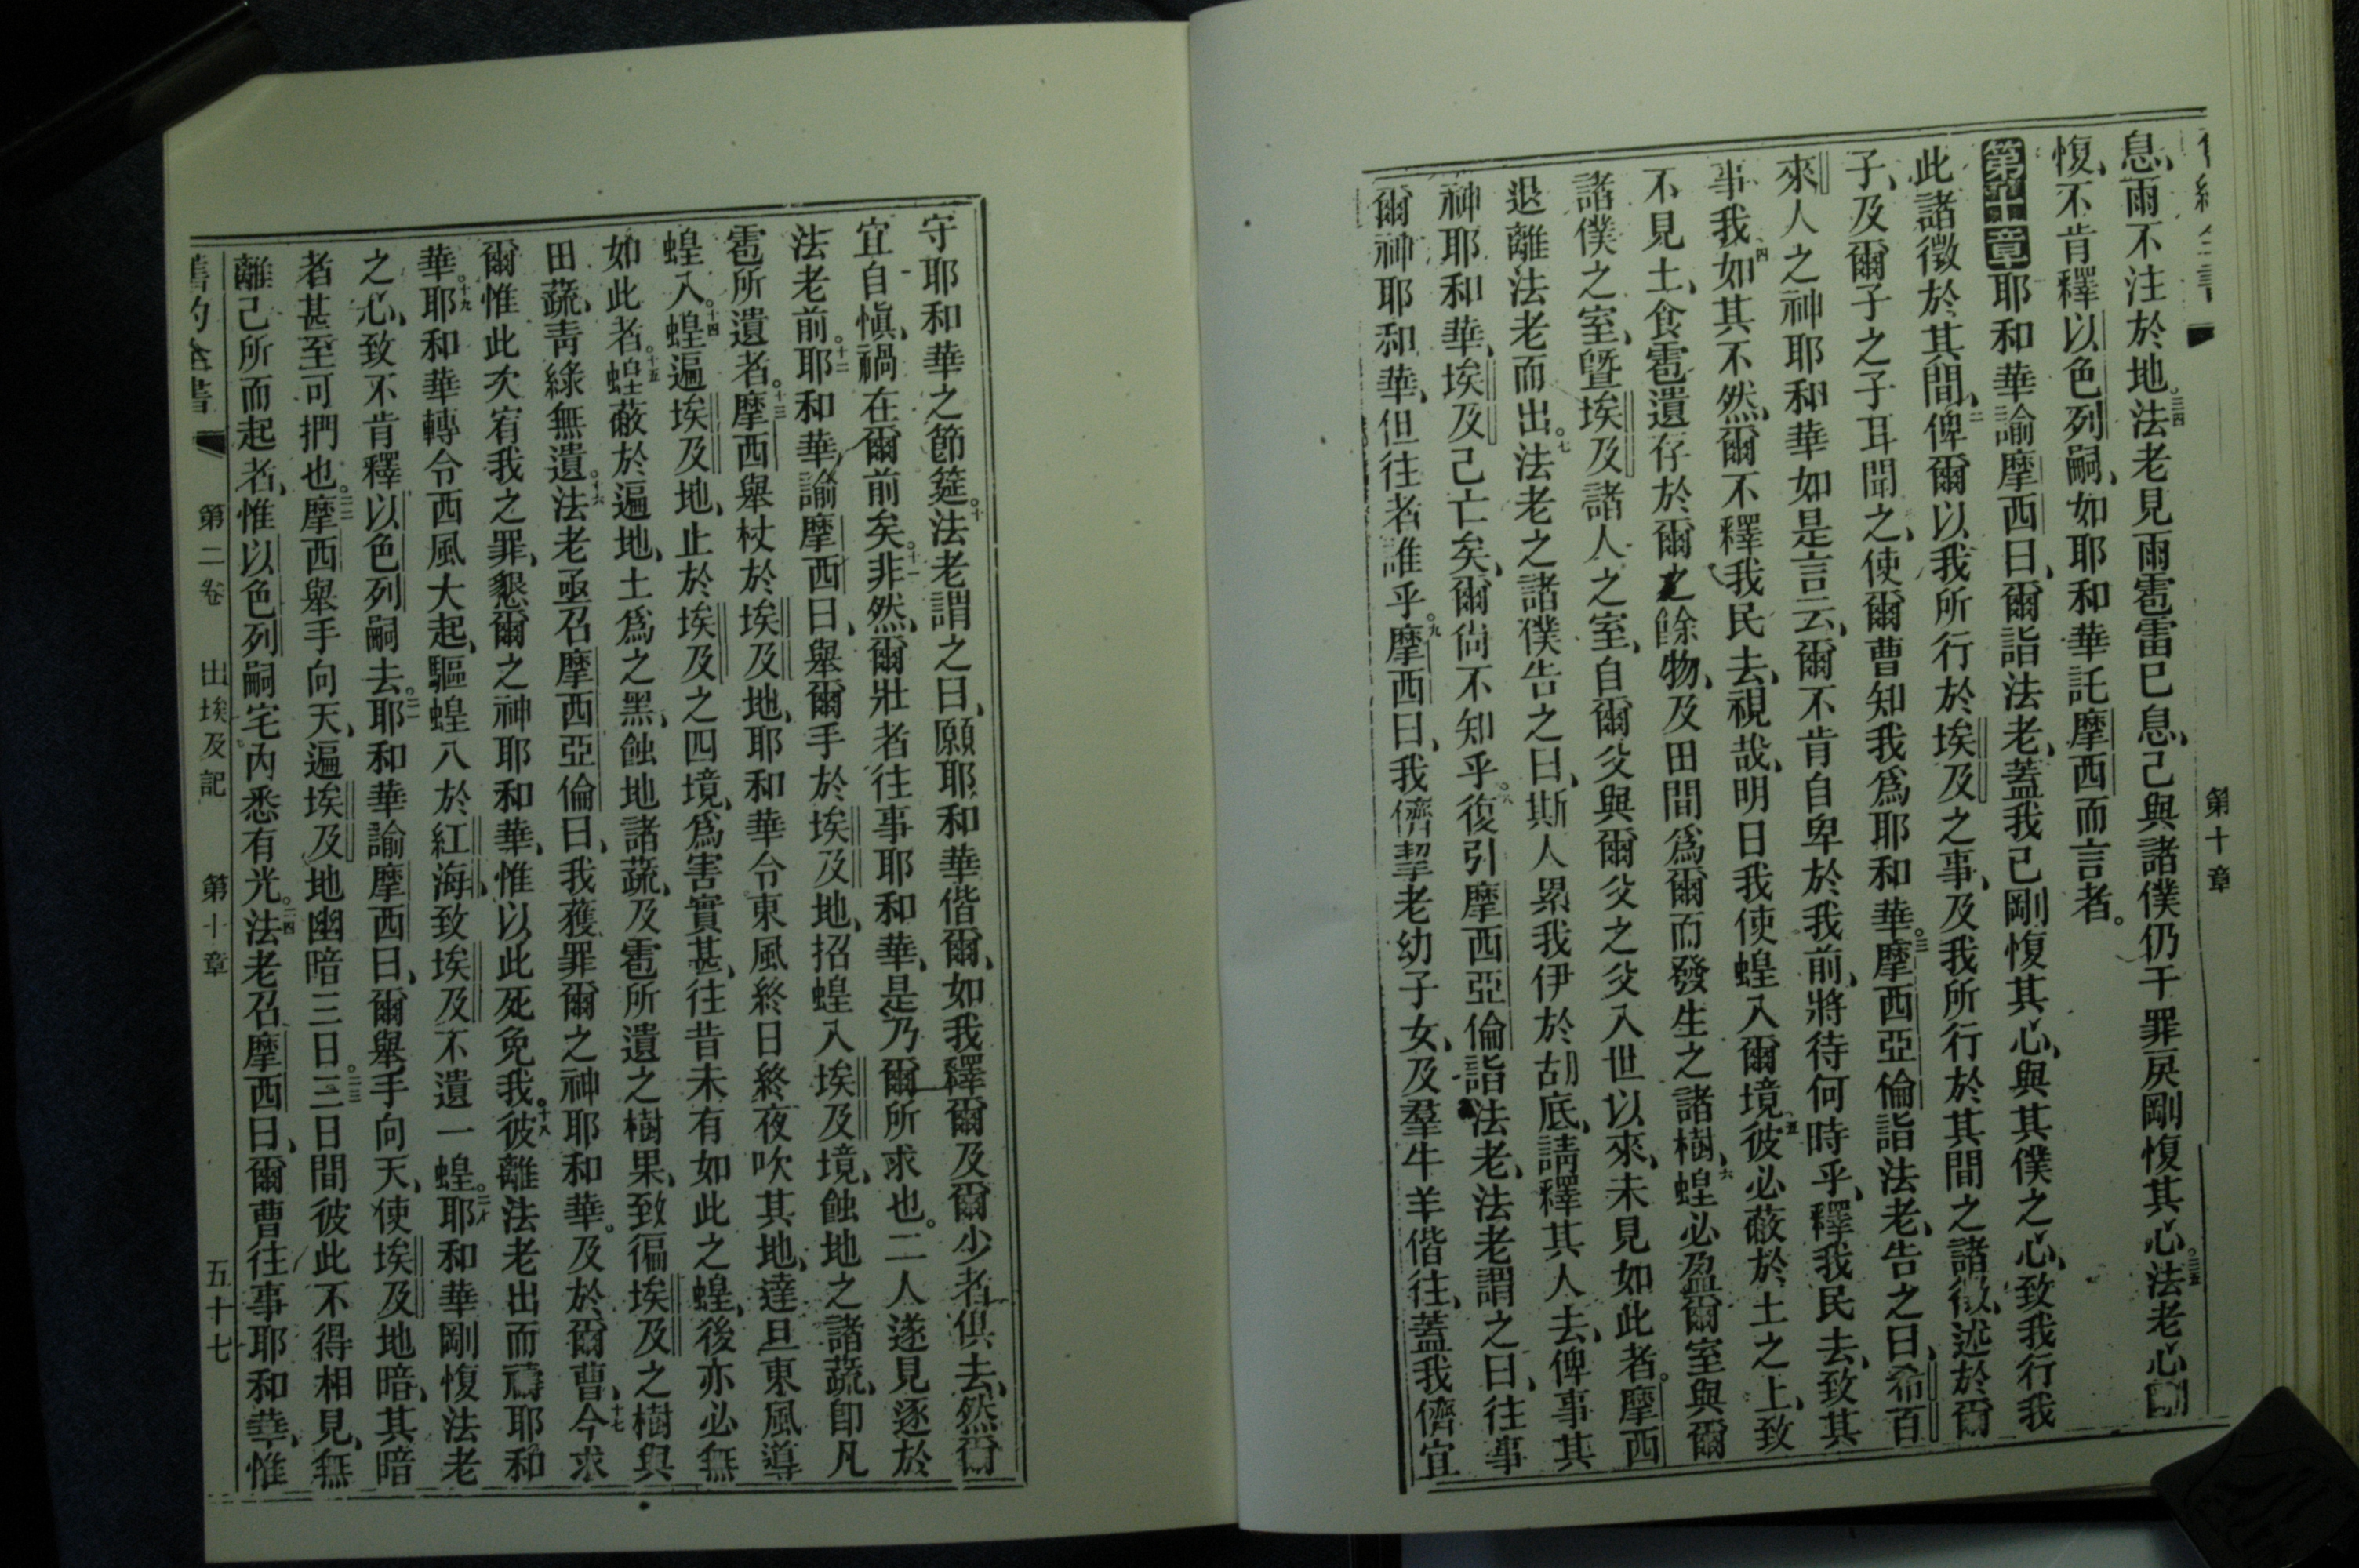 第十章
息、雨不注於地。三四法老見雨雹雷已息、己與諸僕仍干罪戾剛愎其心。三五法老心剛
愎、不肯釋以色列嗣、如耶和華託摩西而言者。
第十章耶和華諭摩西曰、爾詣法老、蓋我已剛愎其心、與其僕之心、致我行我
此諸徵於其間、二俾爾以我所行於埃及之事、及我所行於其間之諸徵、述於爾
子、及爾子之子耳聞之、使爾曹知我爲耶和華。三摩西亞倫詣法老、告之曰、希百
來人之神耶和華如是言云、爾不肯自卑於我前、將待何時乎、釋我民去、致其
事我、四如其不然、爾不釋我民去、視哉、明日我使蝗入爾境、五彼必蔽於土之上、致
不見土、食雹遺存於爾之餘物、及田間爲爾而發生之諸樹、六蝗必盈爾室與爾
諸僕之室、曁埃及諸人之室、自爾父與爾父之父入世以來、未見如此者。摩西
退離法老而出。七法老之諸僕告之曰、斯人累我伊於胡底、請釋其人去、俾事其
神耶和華、埃及已亡矣、爾尙不知乎。八復引摩西亞倫詣法老、法老謂之曰、往事
爾神耶和華、但往者誰乎。九摩西曰、我儕挈老幼子女、及羣牛羊偕往、蓋我儕宜
守耶和華之節筵。十法老謂之曰、願耶和華偕爾、如我釋爾及爾少者俱去、然爾
宜自愼、禍在爾前矣。十一非然、爾壯者往事耶和華、是乃爾所求也。二人遂見逐於
法老前。十二耶和華諭摩西曰、舉爾手於埃及地、招蝗入埃及境、蝕地之諸蔬、卽凡
雹所遺者。十三摩西舉杖於埃及地、耶和華令東風終日終夜吹其地、達旦東風導
蝗入。十四蝗遍埃及地、止於埃及之四境、爲害實甚、往昔未有如此之蝗、後亦必無
如此者。十五蝗蔽於遍地、土爲之黑、蝕地諸蔬、及雹所遺之樹果、致徧埃及之樹與
田蔬、靑綠無遺。十六法老亟召摩西亞倫曰、我獲罪爾之神耶和華。及於爾曹、十七今求
爾惟此次宥我之罪、懇爾之神耶和華、惟以此死免我。十八彼離法老出而禱耶和
華。十九耶和華轉令西風大起、驅蝗入於紅海、致埃及不遺一蝗。二十耶和華剛愎法老
之心、致不肯釋以色列嗣去。二一耶和華諭摩西曰、爾舉手向天、使埃及地暗、其暗
者甚至可捫也。二二摩西舉手向天、遍埃及地幽暗三日。二三三日間彼此不得相見、無
離己所而起者、惟以色列嗣宅內悉有光。二四法老召摩西曰、爾曹往事耶和華、惟
舊約全書 第二卷 出埃及記 第十章 五十七